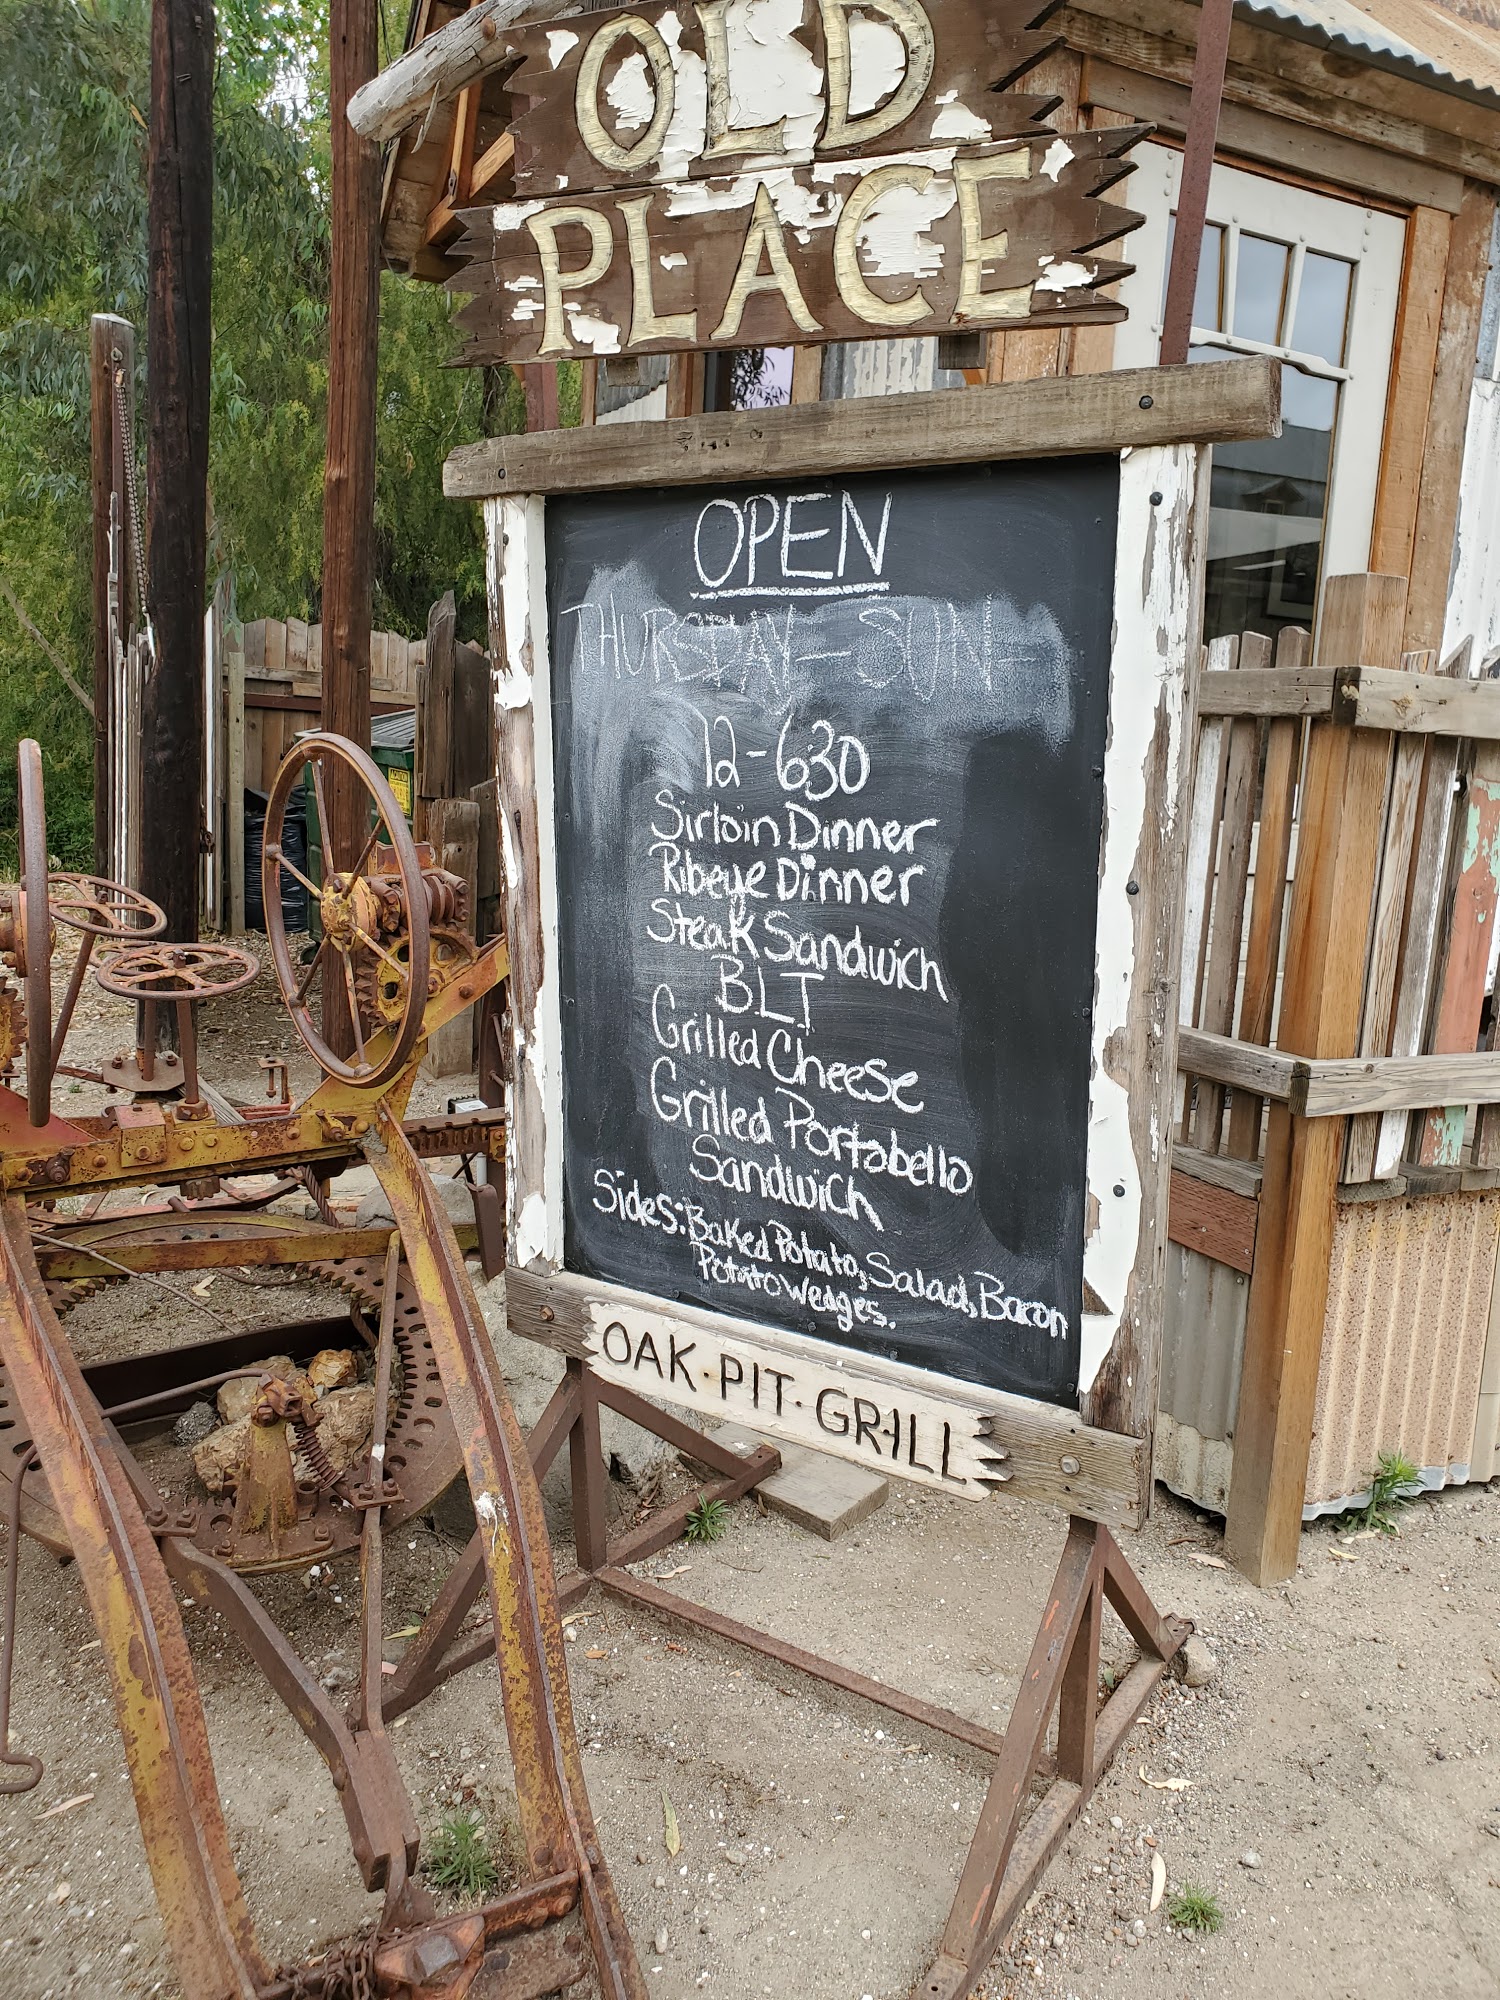 OLD
PLACE
OPEN
THURSDAY - SUN -
12-630
Sirloin Dinner
Ribeye Dinner
Steak Sandwich
BLT
Grilled Cheese
Grilled Portabello
Sandwich
Sides: Baked Potato, Salad, Bacon
Potato Wedges.
OAK·PIT·GRILL